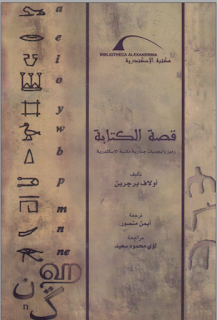 BIBLIOTHECA ALEXANDRINA
مكتبة الإسكندرية
قصة الكتابة
تأليف
أولاف برجرين
ترجمة
أيمن منصور
مراجعة
لؤي محمود سعيد
a
e
i
o
y
w
b
p
m
n
ne
n
ن
گ